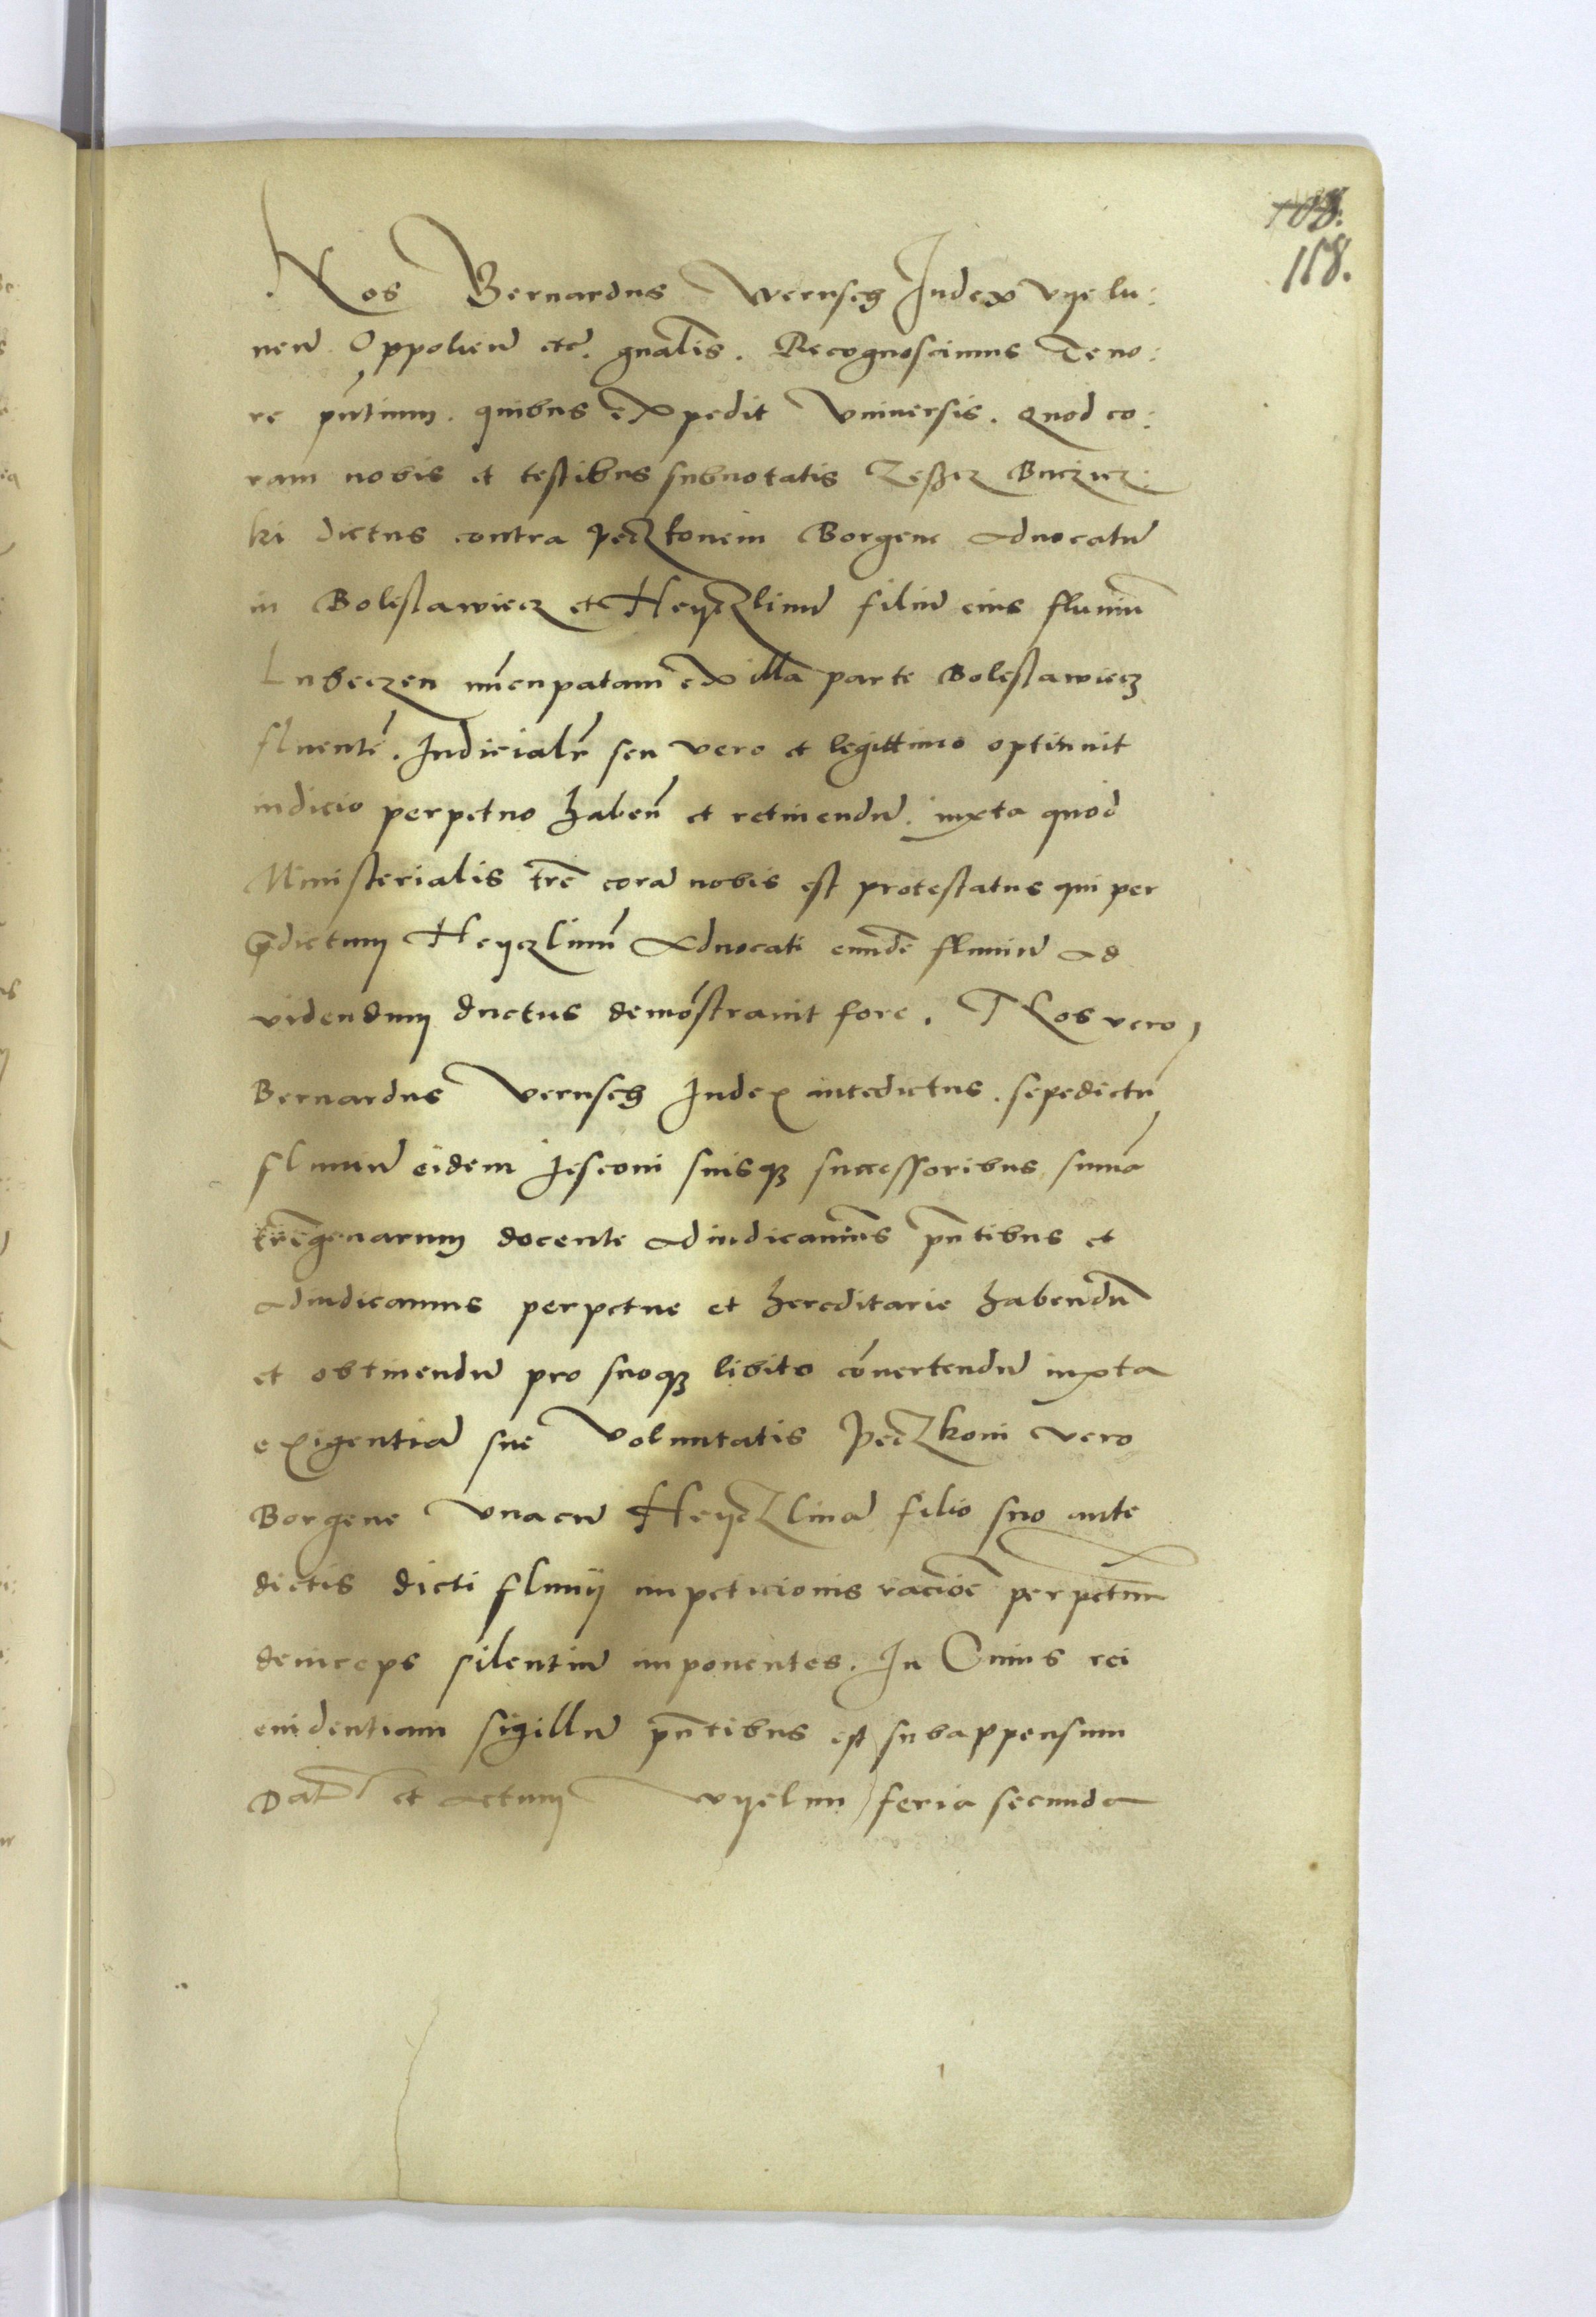 108.
118.
Nos Bernardus Wernsch Judex vyelu:
nen̄ Oppolien̄ etc̄. gnālis. Recognoscimus Teno:
re pn̄tium. quibus expedit Vniuersis. Quod co:
ram nobis et testibus subnotatis Zessez Buczucz:
ki dictus contra peczkonem Borgene Aduocatū
in Boleslawiecz et Heyczlinū filiū eius fluuiū
Lubeczen nūcupatam ex illa parte Boleslawiecz
fluentē. Judicialr̄ seu vero et legittimo optinuit
iudicio perpetuo haben̄ et retinendū. iuxta quod
Ministerialis trē corā nobis est protestatus qui per
p̄dictum Heyczlinū Aduocati eundē fluuiū ad
videndum ductus demōstrauit fore. Nos vero
Bernardus Vernsch Judex antedictus. sepedictū
fluuiū eidem Jesconi suisq3 successoribus sumā
trīgenarum docente adiudicauimus pn̄tibus et
adiudicamus perpetue et hereditarie habendū
et obtinendū pro suoq3 libito cōuertendū iuxta
exigentiā sue Voluntatis Peczkoni vero
Borgene vnacū Heyczlinā filio suo ante
dictis dicti fluuij impeticionis racioē perpetuū
deinceps silentiū imponentes. In Cuius rei
euidentiam sigillū pn̄tibus est subappensum
Dat̄ et actum vyelun feria secunda